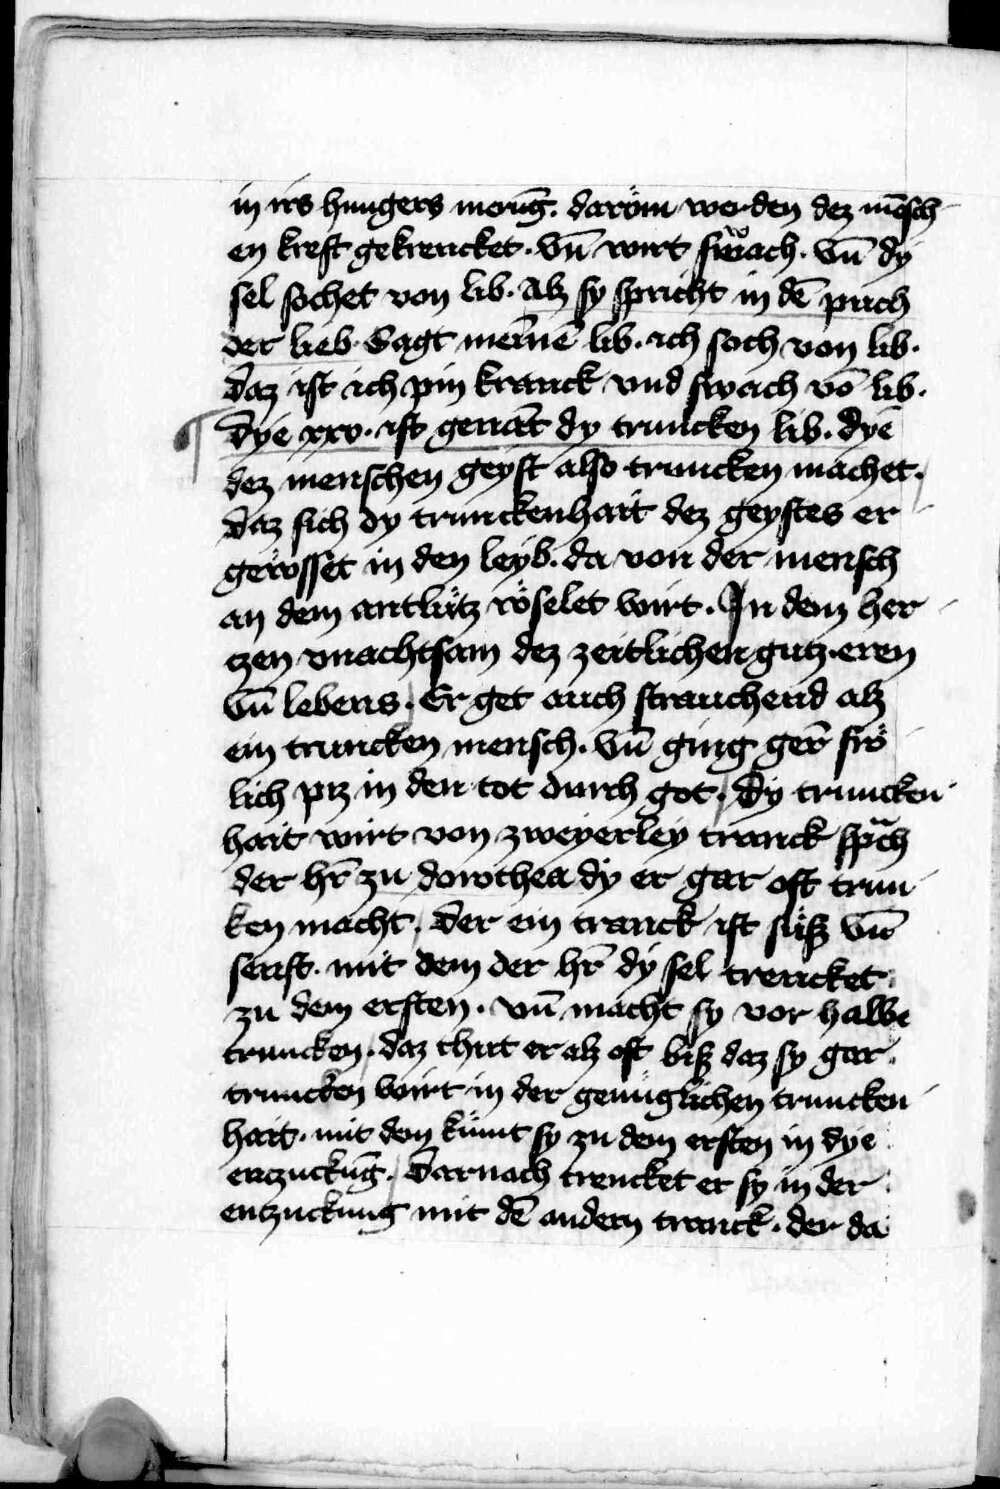 in irs hungers merūg. daröm werden dez mēsch
en kreft gekrencket. vn̄ wirt swach. vn̄ dy
sel sochet von lib. alz sy spricht in dē puch
der lieb. Sagt meinē lib. ich soch von lib.
Daz ist ich pin kranck vnd swach vō lib.
Dye xxv. ist genāt dy truncken lib. dye
dez menschen geyst also truncken machet.
daz sich dy trunckenhait dez geystes er
gewsset in den leyb. da von der mensch
an dem antlütz röselet wirt. In dem her
tzen vnachtsam dez zeitlichen gutz. eren
vn̄ lebens. Er get auch strauchend alz
ein truncken mensch. vn̄ ging ger̄ frö
lich pz in den tot durch got. Dy truncken
hait wirt von zweyerley tranck spͣch
der hr̄ zu dorothea dy er gar oft trun
ken macht. Der ein tranck ist süsz vn̄
senft. mit dem der hr̄ dy sel trencket
zu dem ersten. vn̄ macht sy vor halbe
truncken. daz thut er alz oft bisz daz sy gar
truncken wirt in der genüglichen truncken
hait. mit dem kümt sy zu dem ersten in dye
enczuckūg. Darnach trencket er sy in der
entzuckung mit dē andern tranck. der da